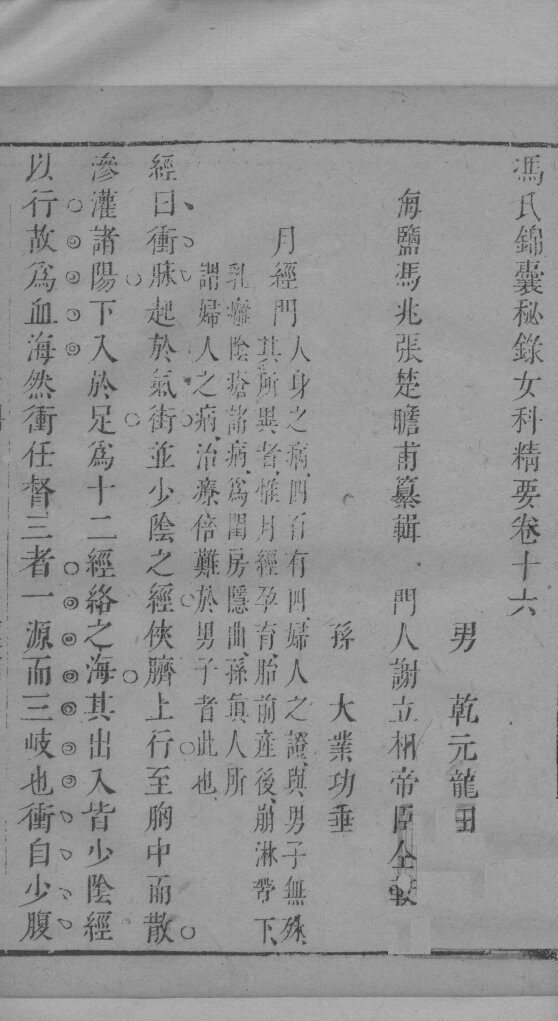 馮氏錦囊秘錄女科精要卷十六
男　乾元龍田
海鹽馮兆張楚瞻甫纂輯　門人謝立相帝臣仝較
孫　大業功垂
月經門
人身之病四百有四婦人之證與男子無殊
其所異者惟月經孕育胎前產後崩淋帶下
乳癰陰瘡諸病為閨房隱曲孫真人所
謂婦人之病治療倍難於男子者此也
經曰衝脉起於氣街並少陰之經俠臍上行至胸中而散
滲灌諸陽下入於足為十二經絡之海其出入皆少陰經
以行故為血海然衝任督三者一源而三岐也衝自少腹